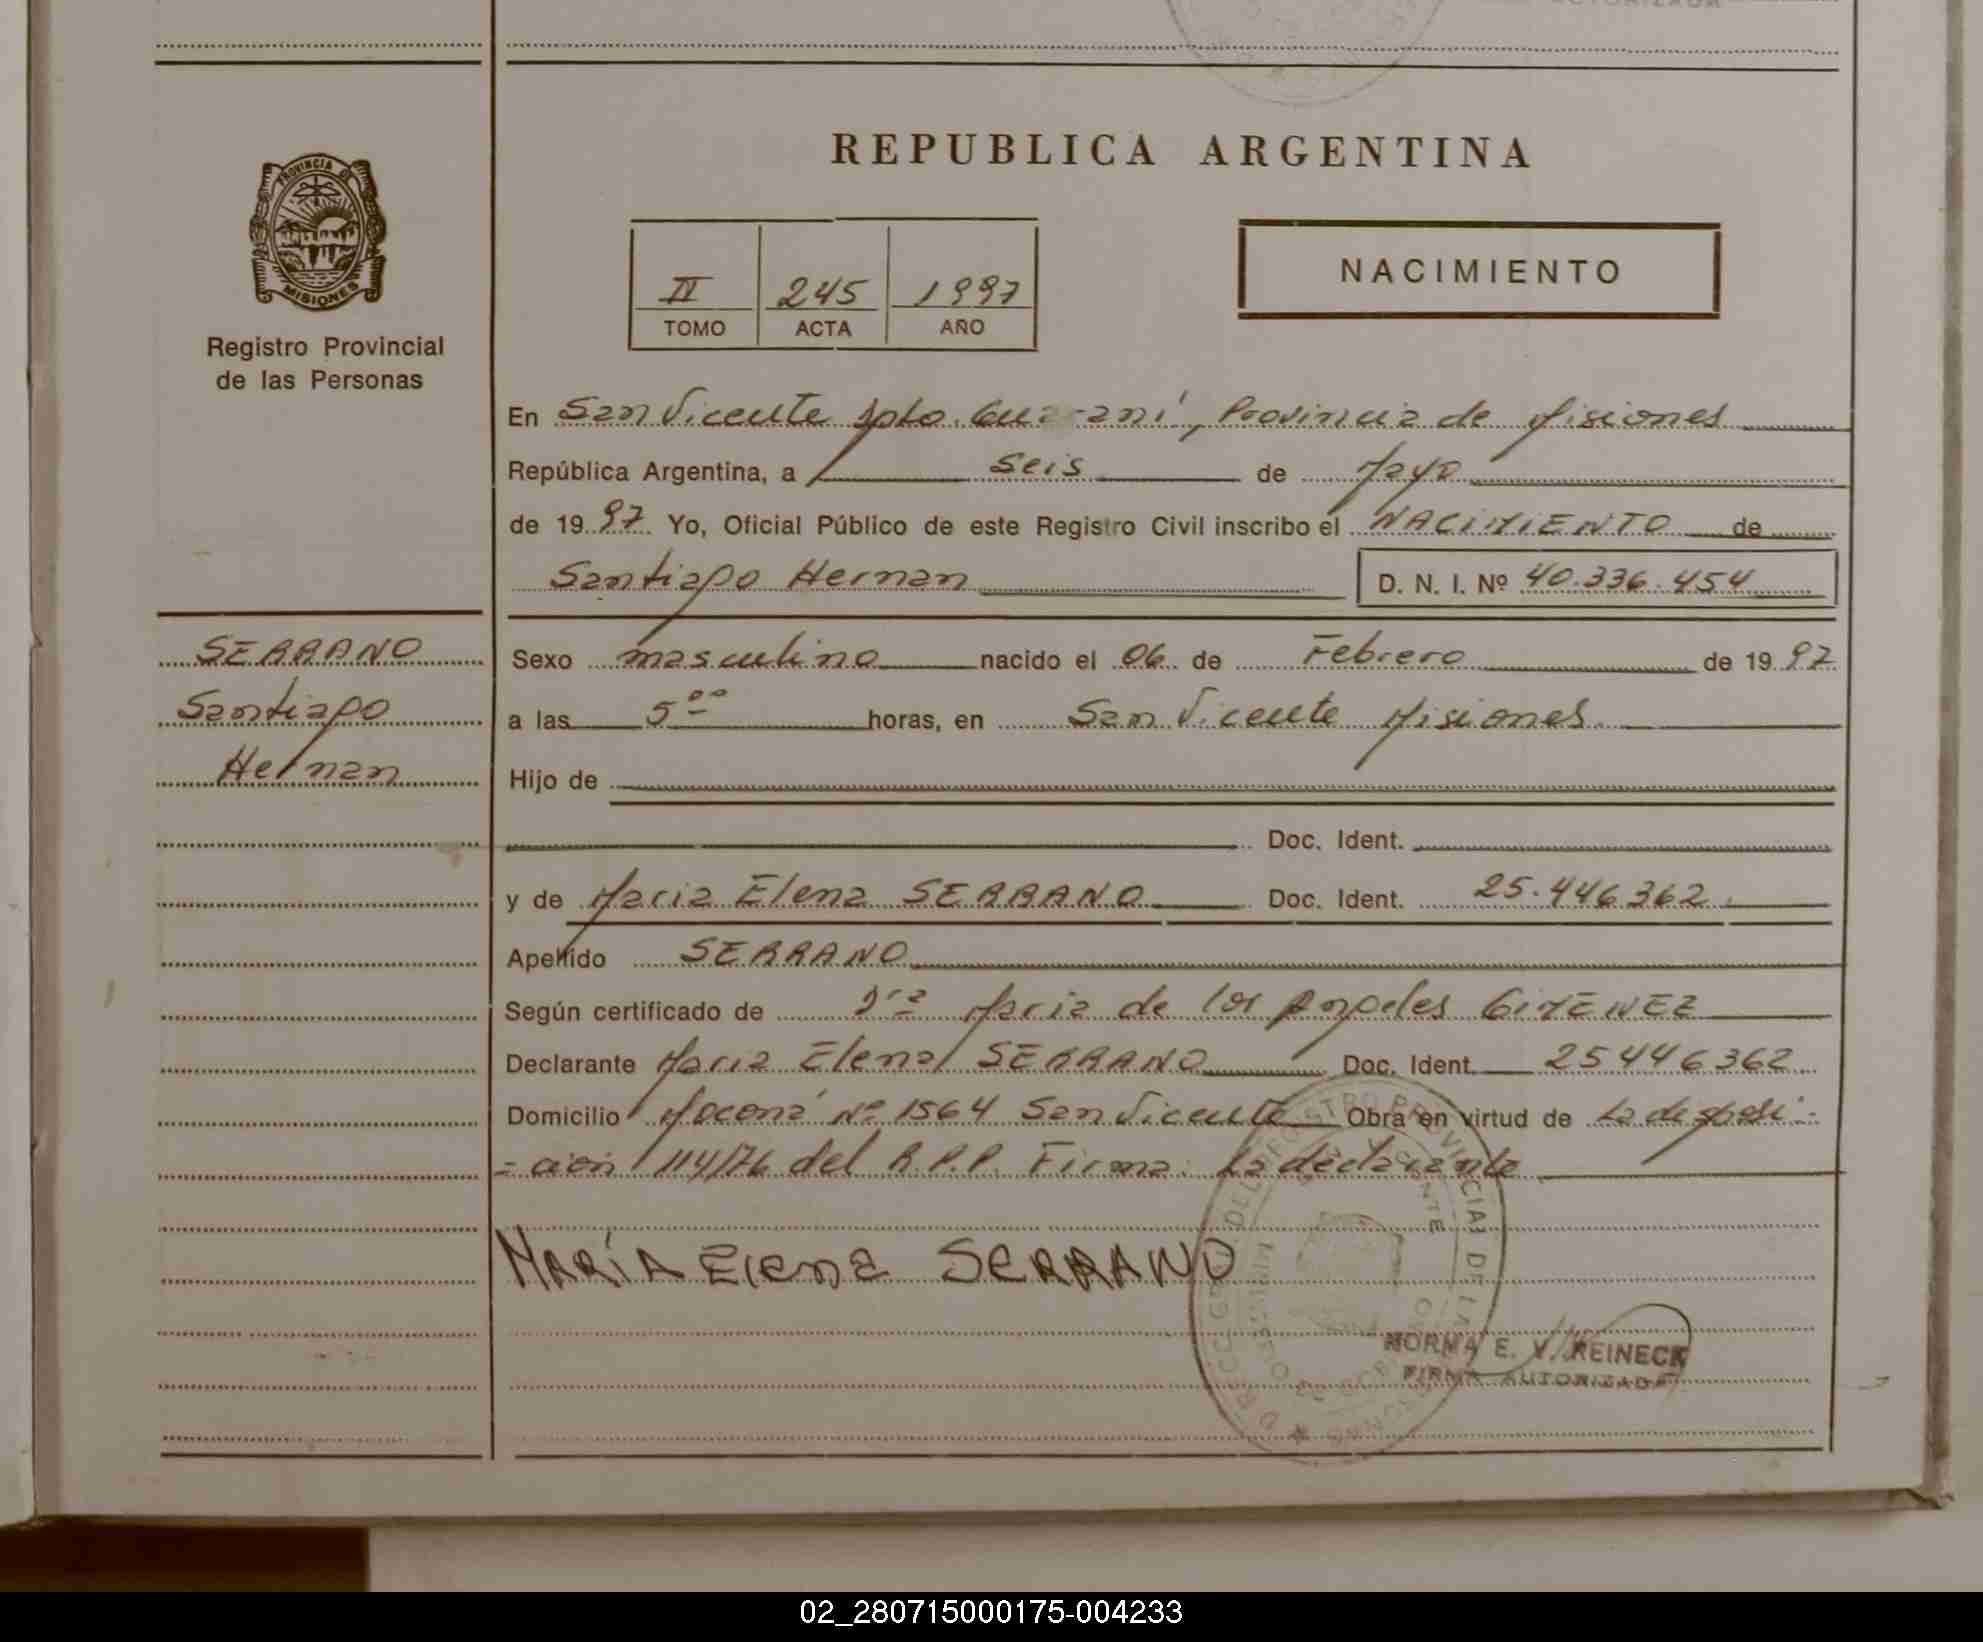 REPUBLICA ARGENTINA
PROVINCIA DE
MISIONES
Registro Provincial
de las Personas
II 245 1997
TOMO ACTA AÑO
NACIMIENTO
En San Vicente Dpto. Guaraní, Provincia de Misiones
República Argentina, a seis de Mayo
de 1997 Yo, Oficial Público de este Registro Civil inscribo el NACIMIENTO de
Santiago Hernan D. N. I. Nº 40.336.454
SERRANO
Santiago
Hernan
Sexo masculino nacido el 06 de Febrero de 1997
a las 5 00 horas, en San Vicente Misiones.
Hijo de
Doc. Ident.
y de Maria Elena SERRANO Doc. Ident. 25.446.362.
Apellido SERRANO
Según certificado de Dra Maria de los Angeles GIMENEZ
Declarante Maria Elena SERRANO Doc. Ident. 25446362
Domicilio Moconá Nº 1564 San Vicente Obra en virtud de La disposi-
-ción 114/76 del R.P.P. Firma: La declarante
MARÍA Elena SERRANO
NORMA E. V. REINECK
FIRMA AUTORIZADA
02_280715000175-004233